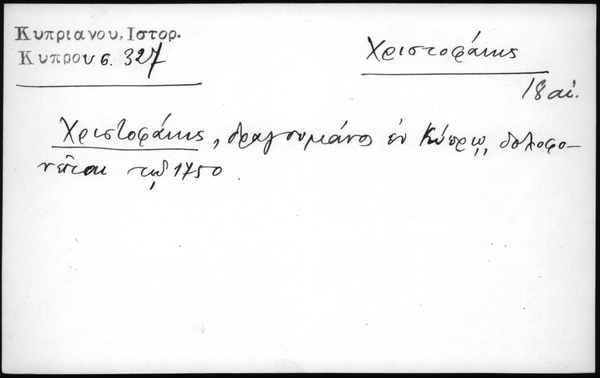 Κυπριανου, Ιστορ.
Κυπρου σ. 327
Χριστοφάκης
18 αἰ.
Χριστοφάκης, δραγουμάνος ἐν Κύπρῳ, δολοφο-
νεῖται τῷ 1750